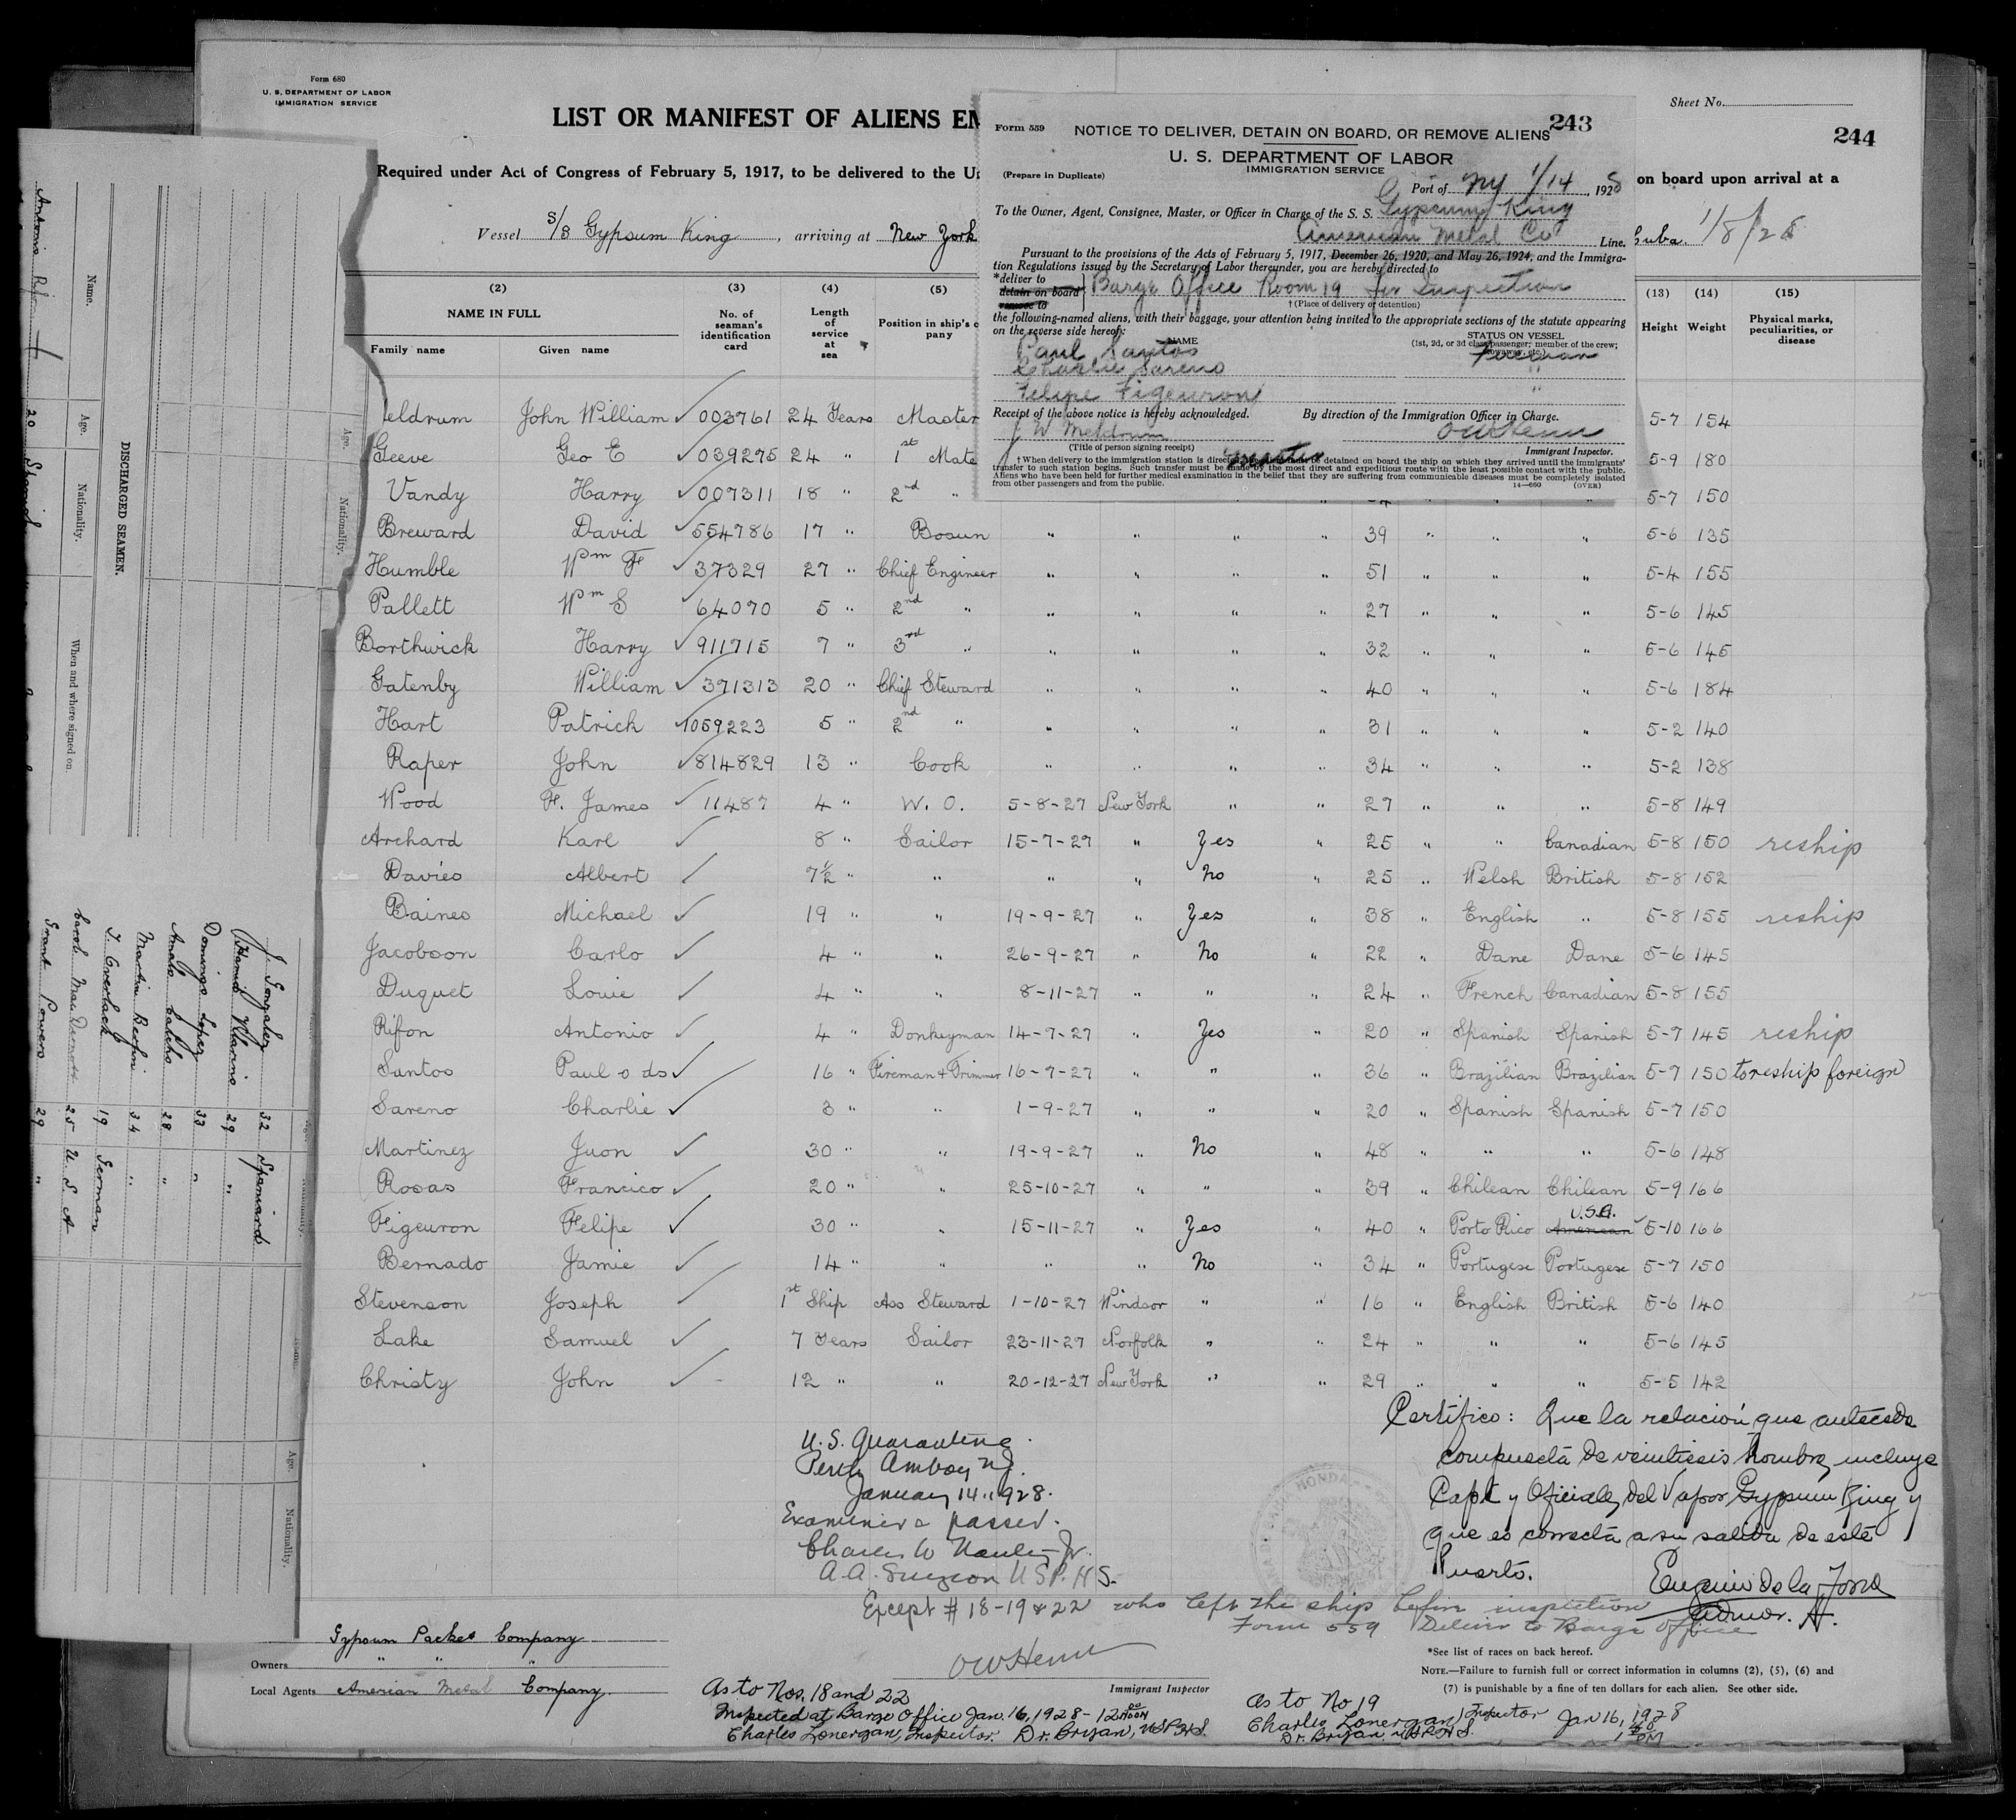 Form 680
U. S. DEPARTMENT OF LABOR
IMMIGRATION SERVICE
Sheet No.
LIST OR MANIFEST OF ALIENS EM
244
Required under Act of Congress of February 5, 1917, to be delivered to the U
on board upon arrival at a
Vessel S/S Gypsum King, arriving at New York
Cuba. 1/8/28
Form 559
243
NOTICE TO DELIVER, DETAIN ON BOARD, OR REMOVE ALIENS
U. S. DEPARTMENT OF LABOR
IMMIGRATION SERVICE
(Prepare in Duplicate)
Port of NY 1/14, 1928
To the Owner, Agent, Consignee, Master, or Officer in Charge of the S. S. Gypsum King
American Metal Co Line.
Pursuant to the provisions of the Acts of February 5, 1917, December 26, 1920, and May 26, 1924, and the Immigra-
tion Regulations issued by the Secretary of Labor thereunder, you are hereby directed to
*deliver to
detain on board
remove to
Barge Office Room 19 for Inspection
†(Place of delivery or detention)
the following-named aliens, with their baggage, your attention being invited to the appropriate sections of the statute appearing
on the reverse side hereof:
NAME
STATUS ON VESSEL
(1st, 2d, or 3d class passenger; member of the crew;
stowaway, etc.)
Paul Santos Fireman
Charlie Sareno "
Felipe Figeuron "
Receipt of the above notice is hereby acknowledged.
By direction of the Immigration Officer in Charge.
J W Meldrum
OWHenn
(Title of person signing receipt)
Master
Immigrant Inspector.
†When delivery to the immigration station is directed, aliens must be detained on board the ship on which they arrived until the immigrants'
transfer to such station begins. Such transfer must be made by the most direct and expeditious route with the least possible contact with the public.
Aliens who have been held for further medical examination in the belief that they are suffering from communicable diseases must be completely isolated
from other passengers and from the public.
14—660 (OVER)
(2) (3) (4) (5) (13) (14) (15)
NAME IN FULL
Family name Given name
No. of seaman's identification card
Length of service at sea
Position in ship's c pany
Height Weight
Physical marks, peculiarities, or disease
eldrum John William 003761 24 Years Master 5-7 154
Geeve Geo E 039275 24 " 1st Mate 5-9 180
Vandy Harry 007311 18 " 2nd " 5-7 150
Breward David 554786 17 " Bosun " " " " 39 " " " 5-6 135
Humble Wm F 37329 27 " Chief Engineer " " " " 51 " " " 5-4 155
Pallett Wm S 64070 5 " 2nd " " " " " 27 " " " 5-6 145
Borthwick Harry 911715 7 " 3rd " " " " " 32 " " " 5-6 145
Gatenby William 371313 20 " Chief Steward " " " " 40 " " " 5-6 184
Hart Patrick 1059223 5 " 2nd " " " " " 31 " " " 5-2 140
Raper John 814829 13 " Cook " " " " 34 " " " 5-2 138
Wood F. James 11487 4 " W. O. 5-8-27 New York " " 27 " " " 5-8 149
Archard Karl 8 " Sailor 15-7-27 " Yes " 25 " " Canadian 5-8 150 reship
Davies Albert 7½ " " " " No " 25 " Welsh British 5-8 152
Baines Michael 19 " " 19-9-27 " Yes " 38 " English " 5-8 155 reship
Jacobson Carlo 4 " " 26-9-27 " No " 22 " Dane Dane 5-6 145
Duquet Louie 4 " " 8-11-27 " " " 24 " French Canadian 5-8 155
Rifon Antonio 4 " Donkeyman 14-7-27 " Yes " 20 " Spanish Spanish 5-7 145 reship
Santos Paul o ds 16 " Fireman & Trimmer 16-7-27 " " " 36 " Brazilian Brazilian 5-7 150 to reship foreign
Sareno Charlie 3 " " 1-9-27 " " " 20 " Spanish Spanish 5-7 150
Martinez Juon 30 " " 19-9-27 " No " 48 " " " 5-6 148
Rosas Francico 20 " " 25-10-27 " " " 39 " Chilean Chilean 5-9 166
Figeuron Felipe 30 " " 15-11-27 " Yes " 40 " Porto Rico American U.S.A. 5-10 166
Bernado Jamie 14 " " " " No " 34 " Portugese Portugese 5-7 150
Stevenson Joseph 1st Ship Ass Steward 1-10-27 Windsor " " 16 " English British 5-6 140
Lake Samuel 7 Years Sailor 23-11-27 Norfolk " " 24 " " " 5-6 145
Christy John 12 " " 20-12-27 New York " " 29 " " " 5-5 142
U.S. Quarantine
Perth Amboy NJ.
January 14, 1928.
Examined & passed.
Charles W Nauley Jr.
A.A. Surgeon U S P. H S.
Certifico: Que la relación que antecede
compuesta de veintiseis hombres, incluye
Capt y Oficiales del Vapor Gypsum King y
que es correcta a su salida de este
Puerto.
Eugenio de la Torre
Admor. A.
HONDA
Except # 18-19 & 22 who left the ship before inspection
Form 559 Deliver to Barge Office
OWHenn
Immigrant Inspector
Gypsum Packet Company
Owners " " "
Local Agents American Metal Company.
As to Nos. 18 and 22
Inspected at Barge Office Jan. 16, 1928 - 12 00 noon
Charles Lonergan, Inspector. Dr. Bryan, USPHS.
As to No 19
Charles Lonergan, Inspector Jan 16, 1928
Dr. Bryan USPHS. 1 40 PM
*See list of races on back hereof.
NOTE.—Failure to furnish full or correct information in columns (2), (5), (6) and
(7) is punishable by a fine of ten dollars for each alien. See other side.
DISCHARGED SEAMEN.
Name. Age. Nationality. When and where signed on.
Antonio Rifon 20 Spanish
Age. Nationality.
J Gonzalez 32 Spaniard
29 "
Domingo Lopez 33 "
28 "
Martin 34 "
T. Overlach 19 German
Carol MacDermott 25 U. S. A
Grant Powers 29 "
Name. Age. Nationality.